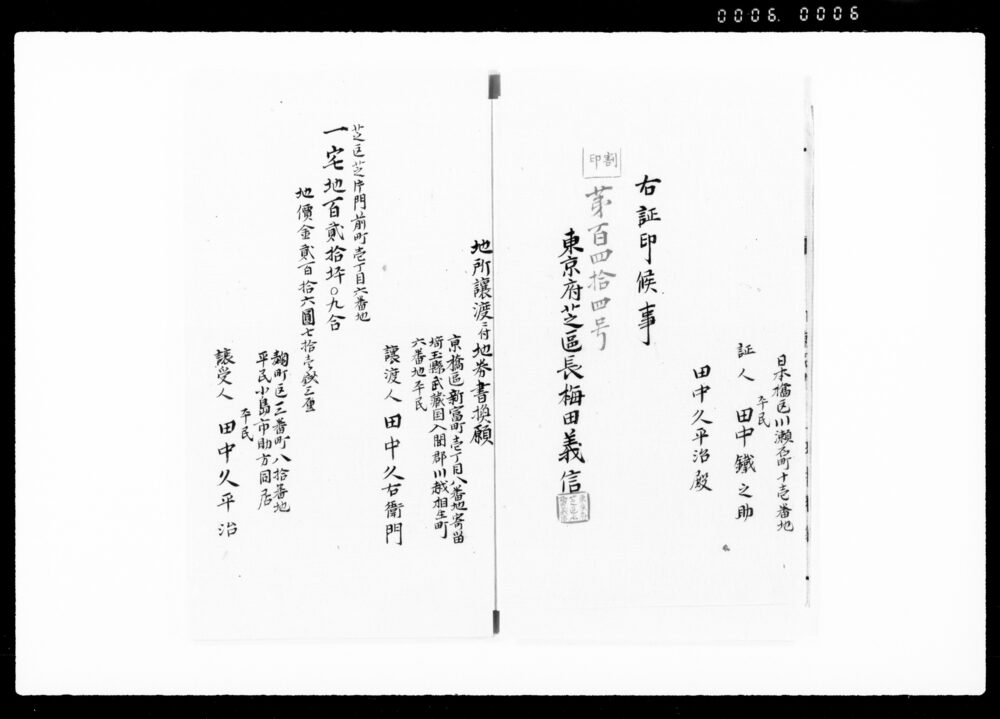 0006. 0006
日本橋区川瀬石町十壱番地
平民
証人 田中鐵之助
田中久平治殿
右証印候事
割印
第百四拾四号
東京府芝區長梅田義信
地所讓渡ニ付地券書換願
京橋區新富町壱丁目八番地寄留
埼玉縣武藏国入間郡川越相生町
六番地平民
讓渡人 田中久右衛門
芝区芝片門前町壱丁目六番地
一宅地百貳拾坪〇九合
地價金貳百拾六圓七拾壱銭三厘
麹町区三番町八拾番地
平民小島市助方同居
平民
讓受人 田中久平治